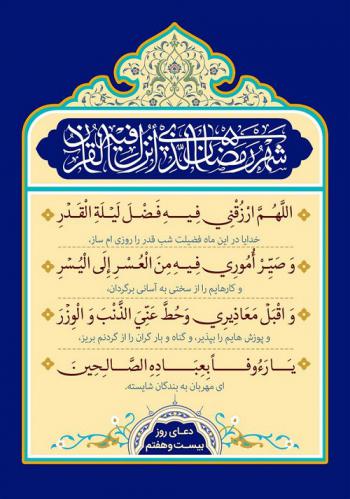 شهر رمضان الذي أنزل فيه القرآن
اللَّهُمَّ ارْزُقْنِي فِيهِ فَضْلَ لَيْلَةِ الْقَدْرِ
خدایا در این ماه فضیلت شب قدر را روزی ام ساز،
وَ صَيِّرْ أُمُورِي فِيهِ مِنَ الْعُسْرِ إِلَى الْيُسْرِ
و کارهایم را از سختی به آسانی برگردان،
وَ اقْبَلْ مَعَاذِيرِي وَ حُطَّ عَنِّيَ الذَّنْبَ وَ الْوِزْرَ
و پوزش هایم را بپذیر، و گناه و بار گران را از گردنم بریز،
يَا رَءُوفاً بِعِبَادِهِ الصَّالِحِينَ
ای مهربان به بندگان شایسته.
دعای روز
بیست و هفتم